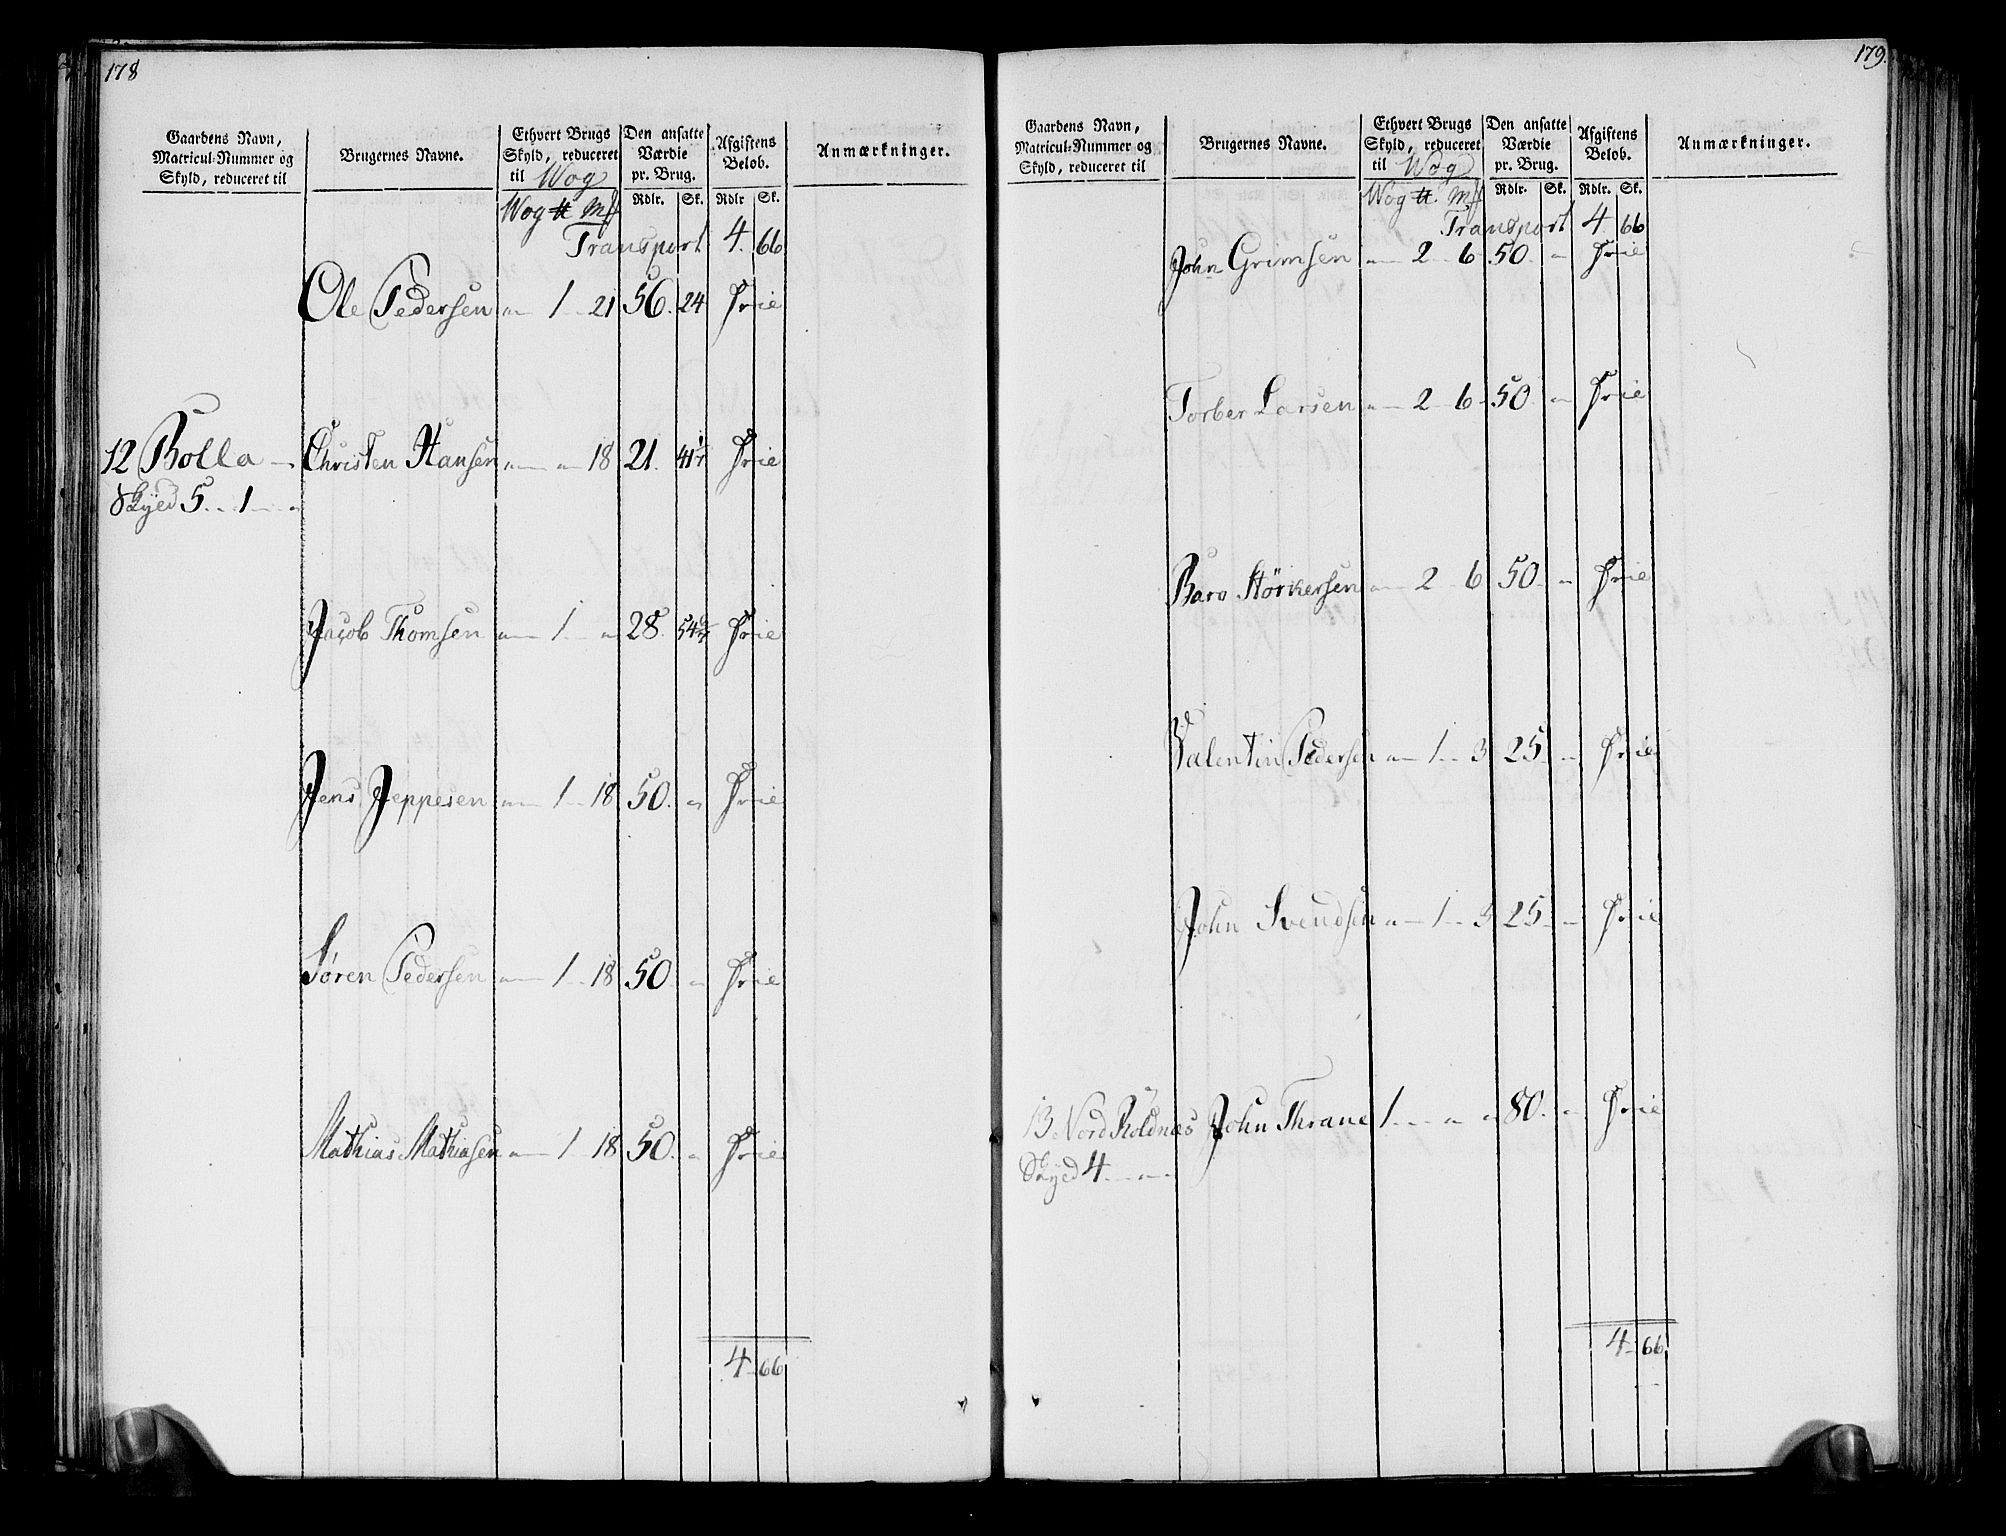 178
Gaardens Navn, Matricul-Nummer og Skyld, reduceret til
Brugernes Navne.
Ethvert Brugs Skyld, reduceret til Wog
Den ansatte Værdie pr. Brug.
Afgiftens Beløb.
Anmærkninger.
Wog ℔ Mk Rdlr. Sk. Rdlr Sk.
Transport 4. 66
Ole Pedersen " 1 .. 21 56. 24 Frie
12 Bolla Christen Hansen " " 18 21. 41 1/7 Frie
Skyld 5 .. 1 .. "
Jacob Thomsen " 1 .. " 28. 54 6/7 Frie
Jens Jeppesen " 1 .. 18 50. " Frie
Søren Pedersen " 1 .. 18 50. " Frie
Mathias Mathiasen " 1 .. 18 50. " Frie
4 .. 66
179.
Gaardens Navn, Matricul-Nummer og Skyld, reduceret til
Brugernes Navne.
Ethvert Brugs Skyld, reduceret til Wog
Den ansatte Værdie pr. Brug.
Afgiftens Beløb.
Anmærkninger.
Wog ℔ Mk Rdlr. Sk. Rdlr. Sk.
Transport 4. 66
John Grimsen " 2 .. 6 50. " Frie
Torber Larsen " 2 .. 6 50. " Frie
Baro Störkersen " 2 .. 6 50. " Frie
Valentin Pedersen " 1 .. 3 25. " Frie
John Svendsen " 1 .. 3 25. " Frie
13 Nord Roldnes John Thrane 1 .. " " 80. " Frie
Skyld 4 .. " ..
4 .. 66